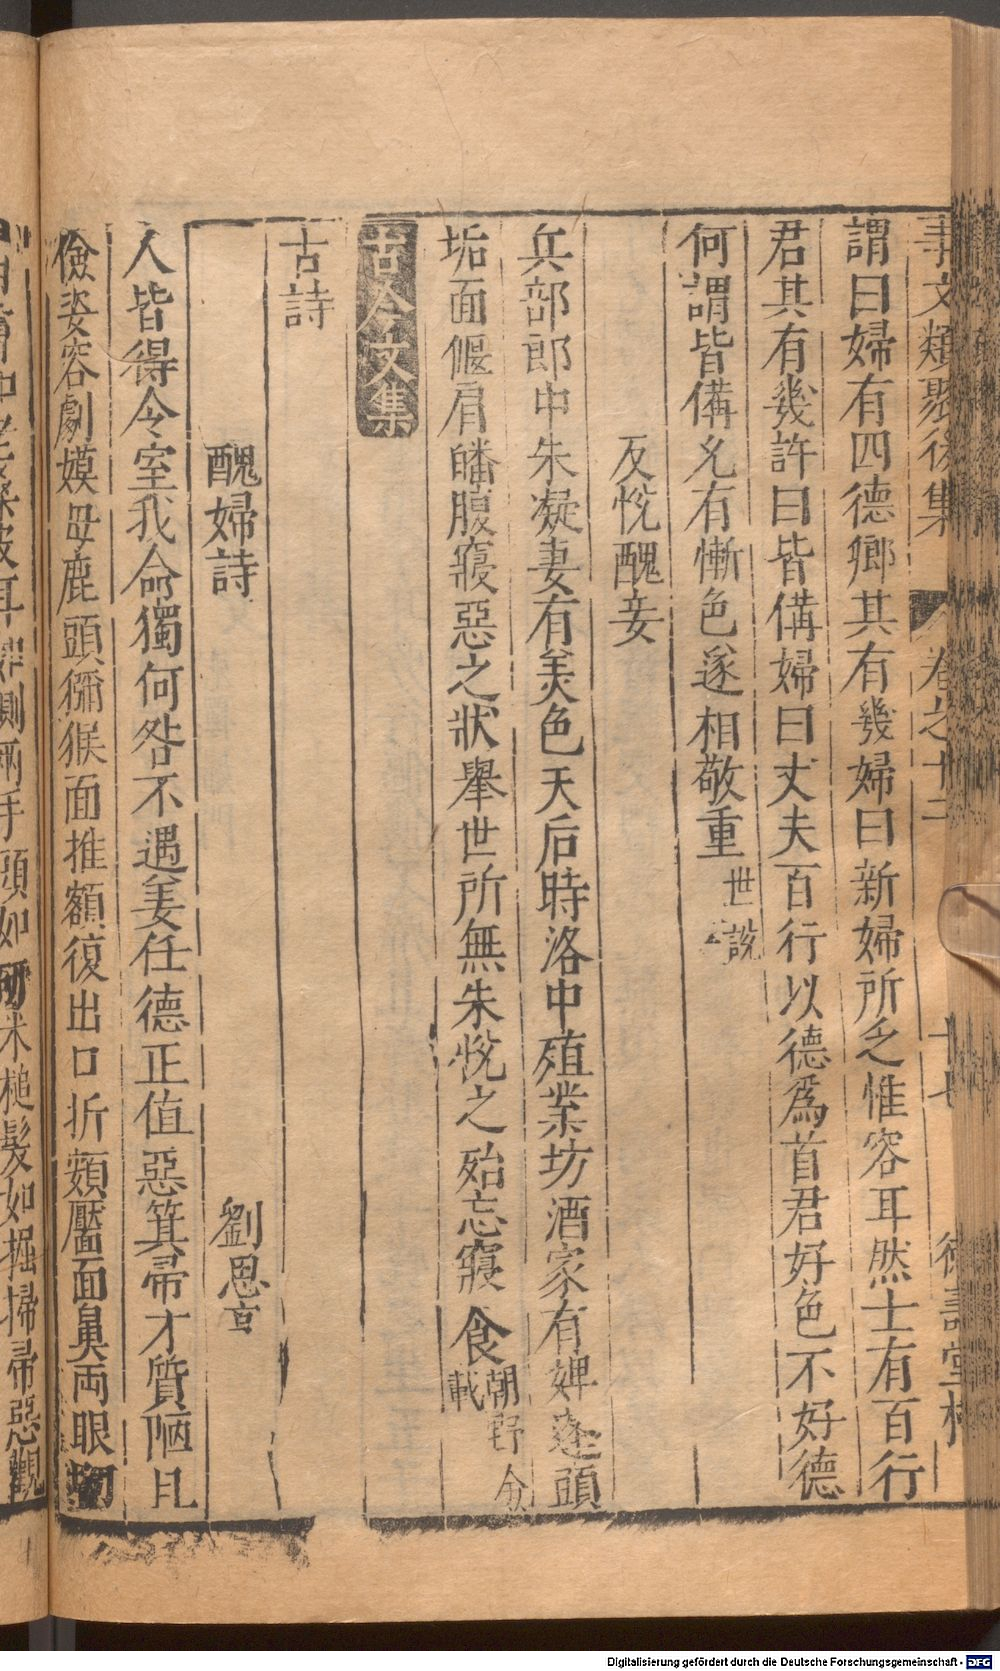 事文類聚後集 卷之廿二 十七 德壽堂梓
謂曰婦有四德鄉其有幾婦曰新婦所乏惟容耳然士有百行
君其有幾許曰皆俻婦曰丈夫百行以德爲首君好色不好德
何謂皆俻允有慚色遂相敬重世說
反悅醜妾
兵部郎中朱凝妻有美色天后時洛中殖業坊酒家有婢蓬頭
垢面傴肩皤腹寢惡之狀舉世所無朱悅之殆忘寢食朝野僉載
古今文集
古詩
醜婦詩 劉思真
人皆得令室我命獨何咎不遇姜任德正值惡箕帚才質陋且
儉姿容劇嫫母鹿頭獼猴面推額復出口折頞靨面鼻両眼
手頭如米槌髮如掘掃帚惡觀
Digitalisierung gefördert durch die Deutsche Forschungsgemeinschaft - DFG